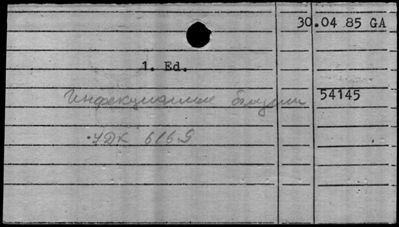 30.04 85 GA
1. Ed.
Инфекционные болезни 54145
УДК 616.9